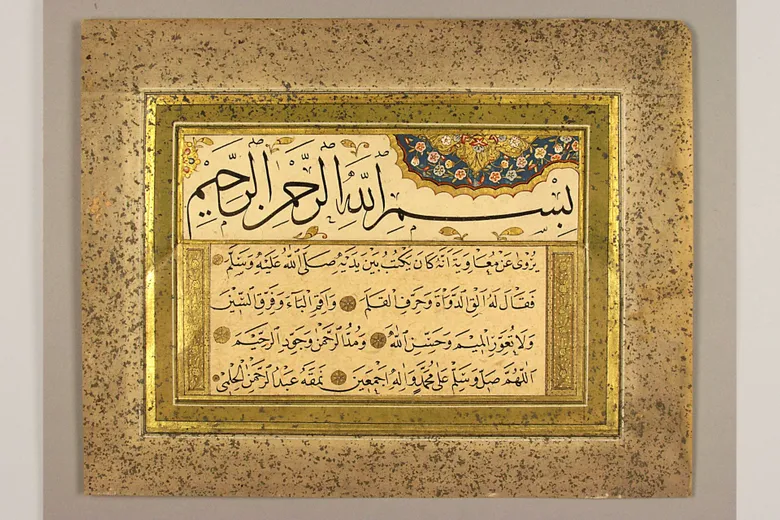 بسم الله الرحمن الرحيم
يروى عن معاوية انه كان يكتب بين يديه صلى الله عليه وسلم
فقال له الق الدواة وحرف القلم واقم الباء وفرق السين
ولا تعور الميم وحسن الله ومد الرحمن وجود الرحيم
اللهم صل وسلم على محمد واله اجمعين نمقه عبد الرحمن الحلمي